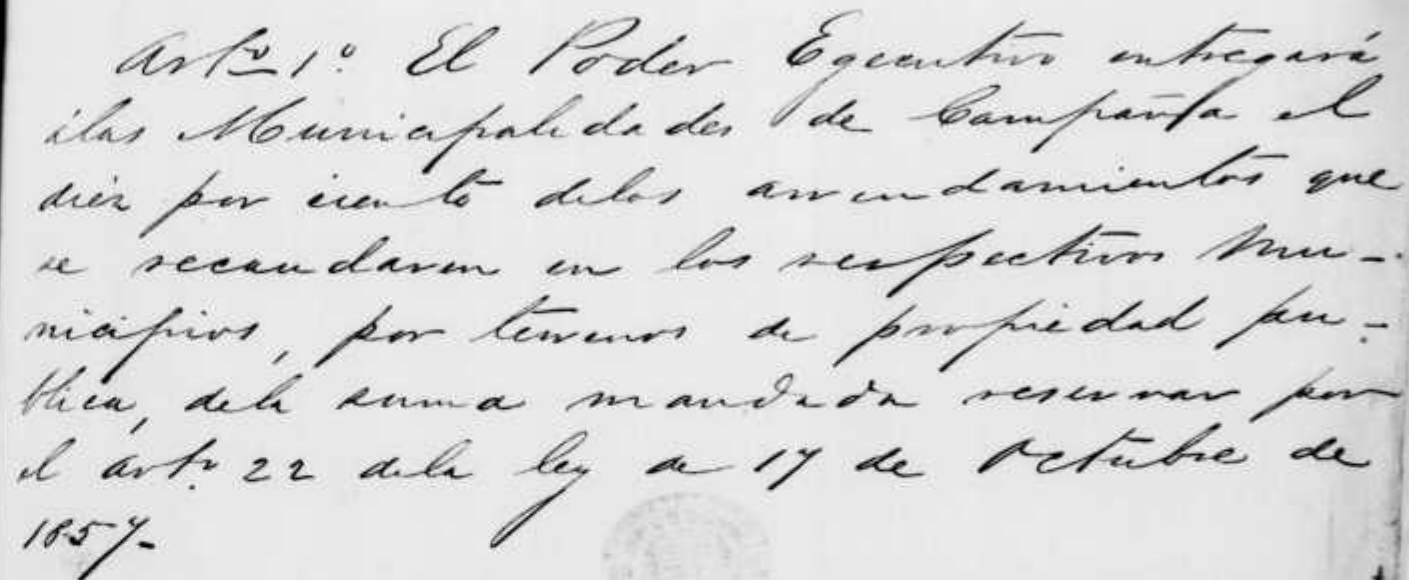 Artº 1º El Poder Egecutivo entregará
álas Municipalidades de Campaña el
diez por ciento delos arrendamientos que
se recaudaren en los respectivos Mu-
nicipios, por terrenos de propiedad pu-
blica, dela suma mandada reservar por
el artº 22 dela ley de 17 de Octubre de
1857-